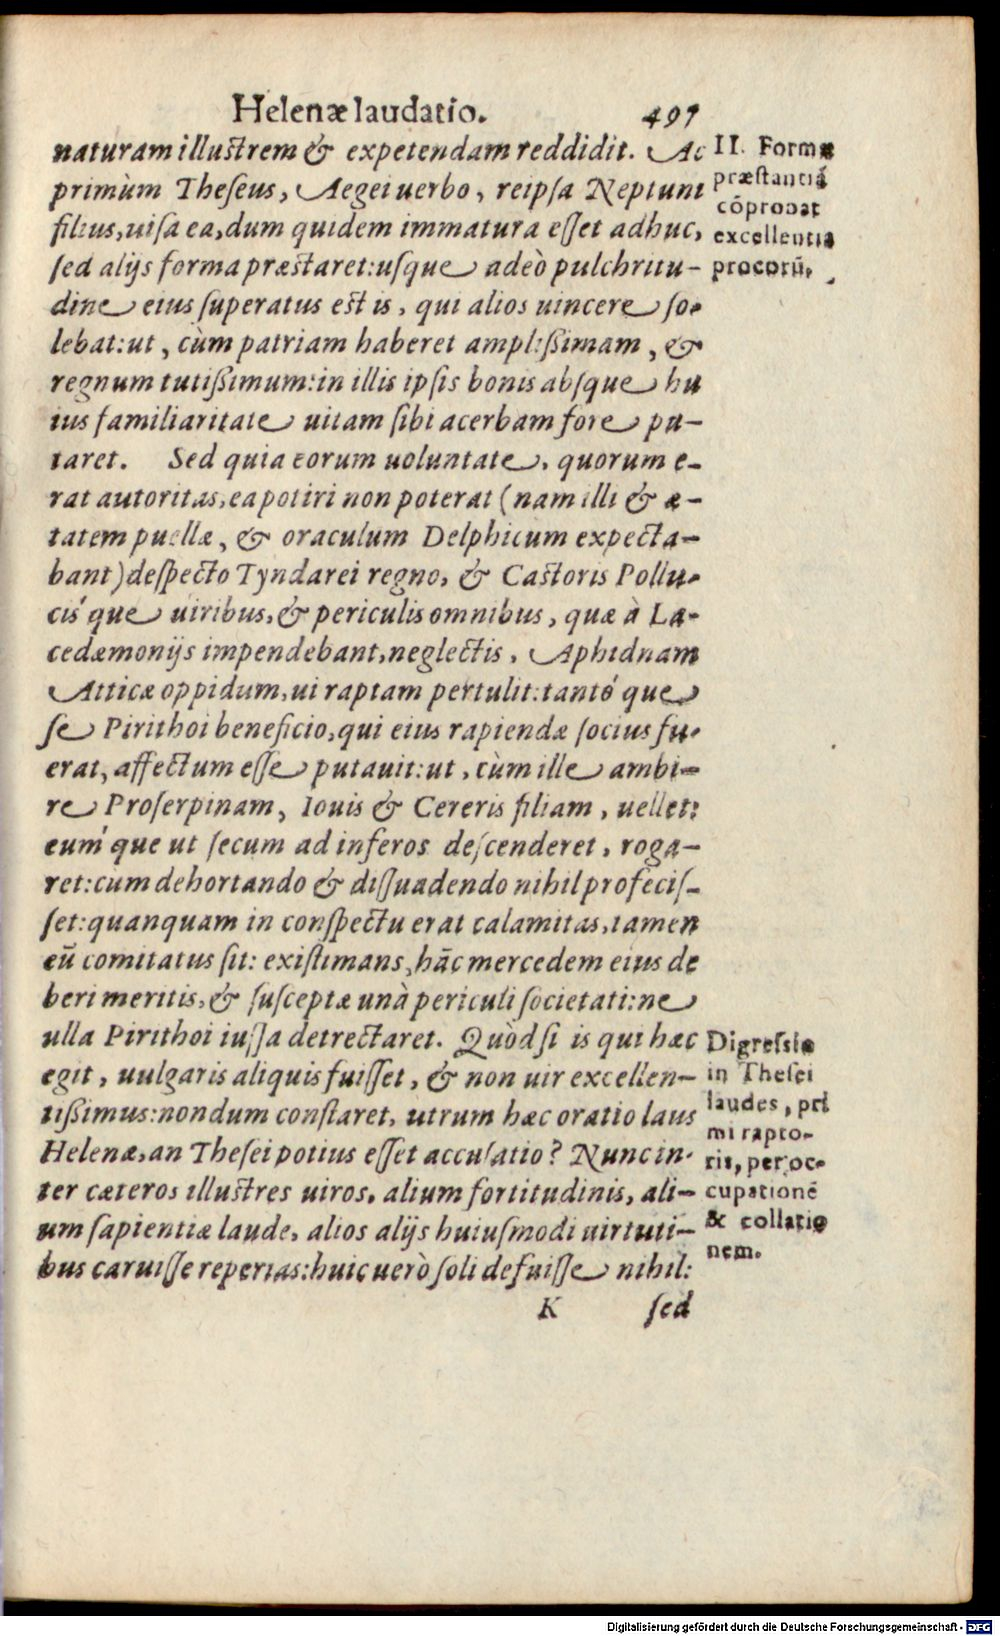 Helenæ laudatio. 497
naturam illustrem & expetendam reddidit. Ac
primùm Theseus, Aegei uerbo, reipsa Neptuni
filius, uisa ea, dum quidem immatura esset adhuc,
sed alijs forma præstaret: usque adeò pulchritu-
dine eius superatus est is, qui alios uincere so-
lebat: ut, cùm patriam haberet amplißimam, &
regnum tutißimum: in illis ipsis bonis absque hu
ius familiaritate uitam sibi acerbam fore pu-
taret. Sed quia eorum uoluntate, quorum e-
rat autoritas, ea potiri non poterat (nam illi & æ-
tatem puellæ, & oraculum Delphicum expecta-
bant) despecto Tyndarei regno, & Castoris Pollu-
cis´que uiribus, & periculis omnibus, quæ à La-
cedæmonijs impendebant, neglectis, Aphidnam
Atticæ oppidum, ui raptam pertulit: tanto´que
se Pirithoi beneficio, qui eius rapiendæ socius fu-
erat, affectum esse putauit: ut, cùm ille ambi-
re Proserpinam, Iouis & Cereris filiam, uellet:
eum´que ut secum ad inferos descenderet, roga-
ret: cum dehortando & dissuadendo nihil profecis-
set: quanquam in conspectu erat calamitas, tamen
eũ comitatus sit: existimans, hãc mercedem eius de
beri meritis, & susceptæ unà periculi societati: ne
ulla Pirithoi iussa detrectaret. Quòd si is qui hæc
egit, uulgaris aliquis fuisset, & non uir excellen-
tißimus: nondum constaret, utrum hæc oratio laus
Helenæ, an Thesei potius esset accusatio? Nunc in-
ter cæteros illustres uiros, alium fortitudinis, ali-
um sapientiæ laude, alios alijs huiusmodi uirtuti-
bus caruisse reperias: huic uerò soli defuisse nihil:
K sed
II. Formæ
præstantiã
cõprobat
excellentia
procorũ.
Digressio
in Thesei
laudes, pri
mi rapto-
ris, per oc-
cupationẽ
& collatio
nem.
Digitalisierung gefördert durch die Deutsche Forschungsgemeinschaft - DFG